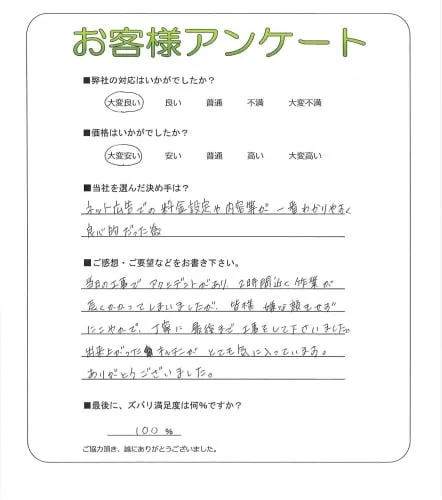 お客様アンケート
■弊社の対応はいかがでしたか?
大変良い 良い 普通 不満 大変不満
■価格はいかがでしたか?
大変安い 安い 普通 高い 大変高い
■当社を選んだ決め手は?
ネット広告での料金設定や内容等が 一番わかりやすく
良心的だった為
■ご感想・ご要望などをお書き下さい。
当日の工事で アクシデントがあり、2時間近く作業が
長くかかってしまいましたが、皆様 嫌な顔もせず
にこやかで、丁寧に 最後まで 工事をして下さいました。
出来上がった キッチンが とても気に入っています。
ありがとうございました。
■最後に、ズバリ満足度は何%ですか?
100 %
ご協力頂き、誠にありがとうございました。